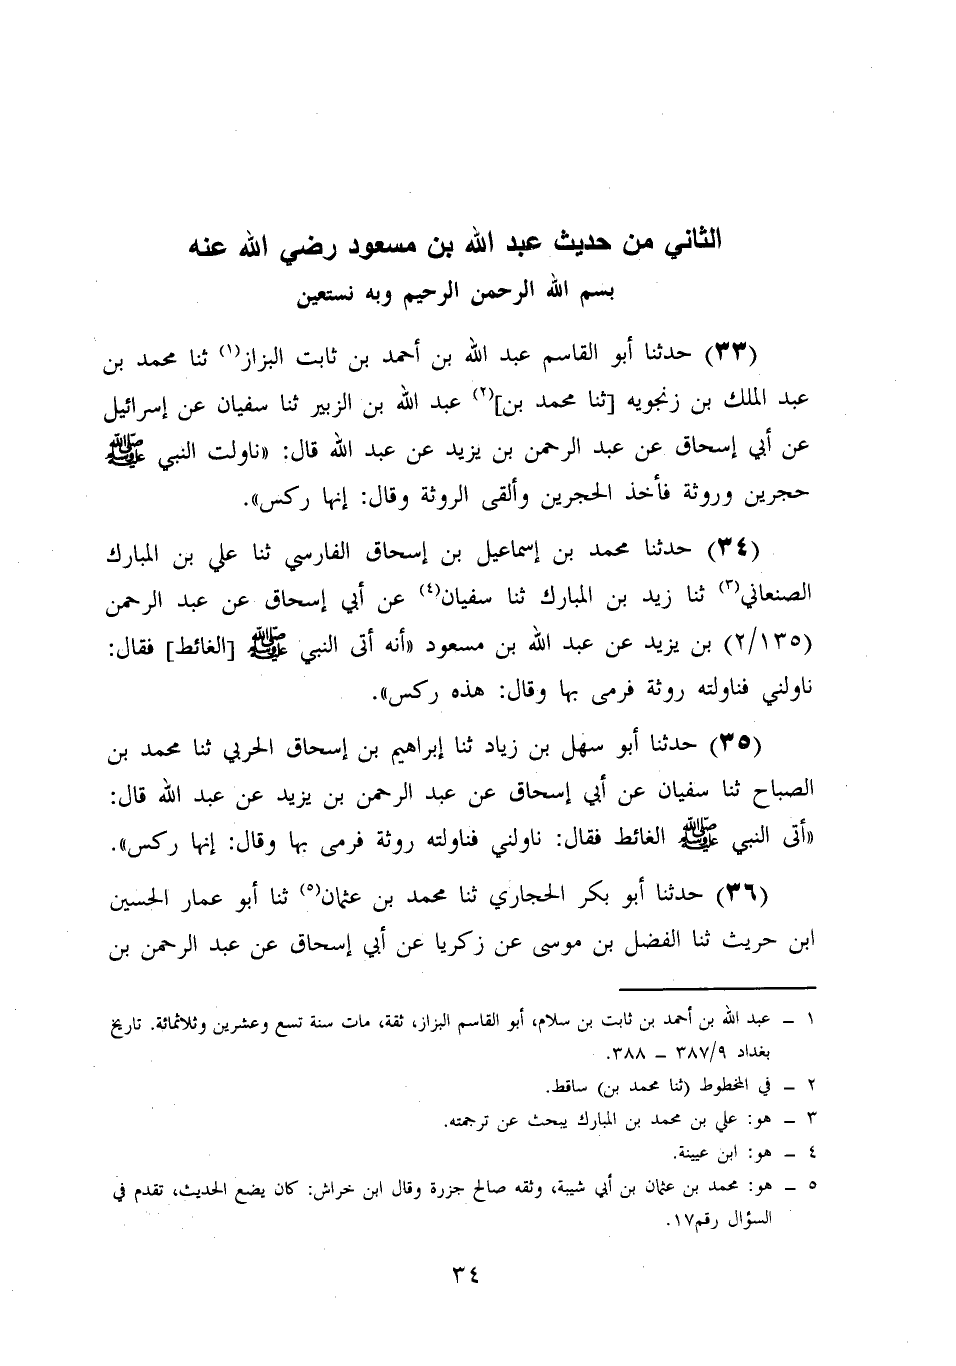 الثاني من حديث عبد الله بن مسعود رضي الله عنه
بسم الله الرحمن الرحيم وبه نستعين
(٣٣) حدثنا أبو القاسم عبد الله بن أحمد بن ثابت البزاز(١) ثنا محمد بن
عبد الملك بن زنجويه [ثنا محمد بن](٢) عبد الله بن الزبير ثنا سفيان عن إسرائيل
عن أبي إسحاق عن عبد الرحمن بن يزيد عن عبد الله قال: «ناولت النبي ﷺ
حجرين وروثة فأخذ الحجرين وألقى الروثة وقال: إنها ركس».
(٣٤) حدثنا محمد بن إسماعيل بن إسحاق الفارسي ثنا علي بن المبارك
الصنعاني(٣) ثنا زيد بن المبارك ثنا سفيان(٤) عن أبي إسحاق عن عبد الرحمن
(٢/١٣٥) بن يزيد عن عبد الله بن مسعود «أنه أتى النبي ﷺ [الغائط] فقال:
ناولني فناولته روثة فرمى بها وقال: هذه ركس».
(٣٥) حدثنا أبو سهل بن زياد ثنا إبراهيم بن إسحاق الحربي ثنا محمد بن
الصباح ثنا سفيان عن أبي إسحاق عن عبد الرحمن بن يزيد عن عبد الله قال:
«أتى النبي ﷺ الغائط فقال: ناولني فناولته روثة فرمى بها وقال: إنها ركس».
(٣٦) حدثنا أبو بكر الحجاري ثنا محمد بن عثمان(٥) ثنا أبو عمار الحسين
ابن حريث ثنا الفضل بن موسى عن زكريا عن أبي إسحاق عن عبد الرحمن بن
١ ــ عبد الله بن أحمد بن ثابت بن سلام، أبو القاسم البزاز، ثقة، مات سنة تسع وعشرين وثلاثمائة. تاريخ
بغداد ٣٨٧/٩ ــ ٣٨٨.
٢ ــ في المخطوط (ثنا محمد بن) ساقط.
٣ ــ هو: علي بن محمد بن المبارك يبحث عن ترجمته.
٤ ــ هو: ابن عيينة.
٥ ــ هو: محمد بن عثمان بن أبي شيبة، وثقه صالح جزرة وقال ابن خراش: كان يضع الحديث، تقدم في
السؤال رقم١٧.
٣٤